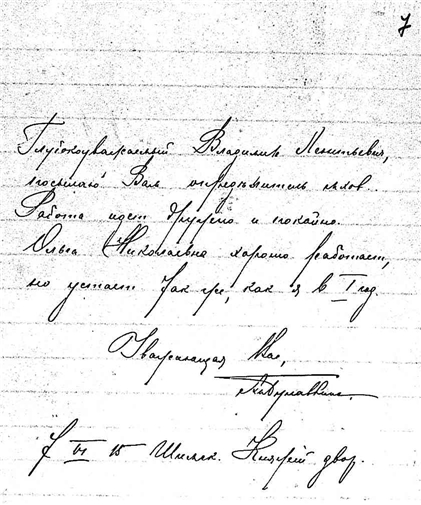 7
Глубокоуважаемый Владимир Леонтьевич,
посылаю Вам определитель мхов.
Работа идет дружно и покойно.
Ольга Николаевна хорошо работает,
но устает так же, как я в I год.
Уважающая Вас,
7 VI 15 Княжий двор.